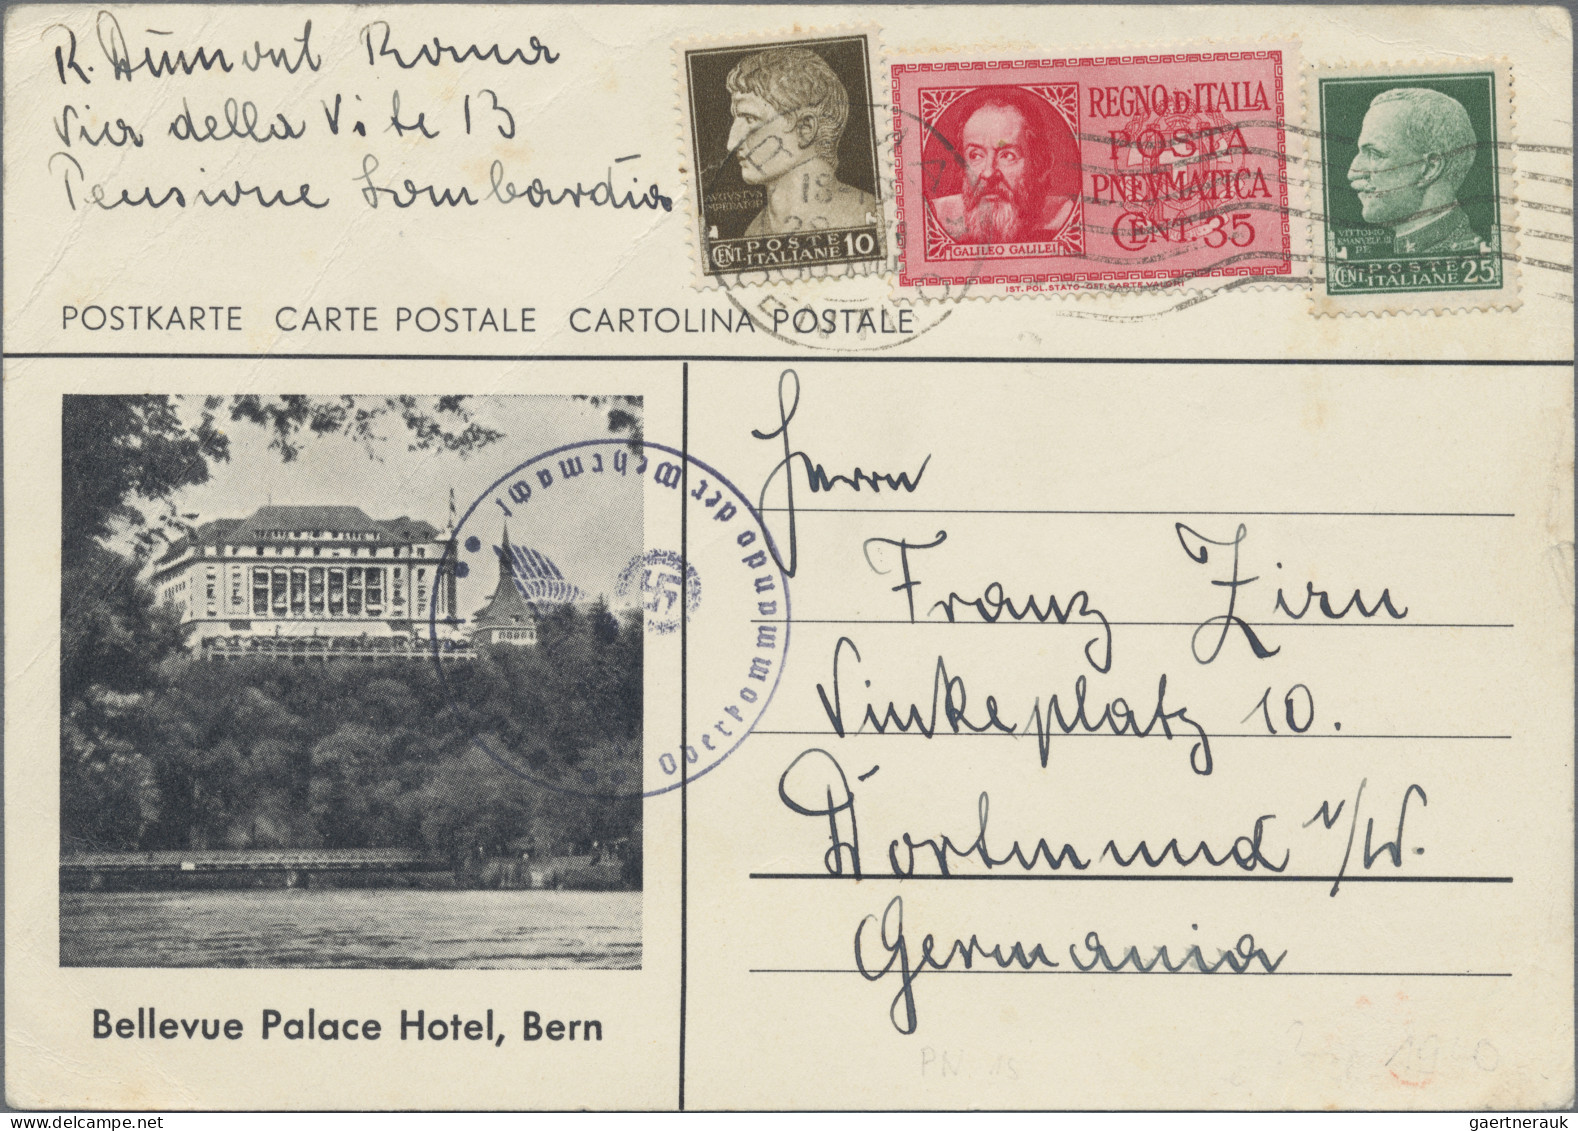 R. Dumont Roma
Via della Vite 13
Pensione Lombardia
AUGUSTVS
IMPERATOR
CENT. POSTE
ITALIANE 10
REGNO D'ITALIA
POSTA
PNEVMATICA
CENT. 35
GALILEO GALILEI
IST. POL. STATO-OFF. CARTE-VALORI
VITTORIO
EMANUELE III
RE
CENT. POSTE
ITALIANE 25
POSTKARTE CARTE POSTALE CARTOLINA POSTALE
Oberkommando der Wehrmacht
Herrn
Franz Zirn
Vinkeplatz 10.
Dortmund i/W.
Germania
Bellevue Palace Hotel, Bern
PN 15
gaertnerauk